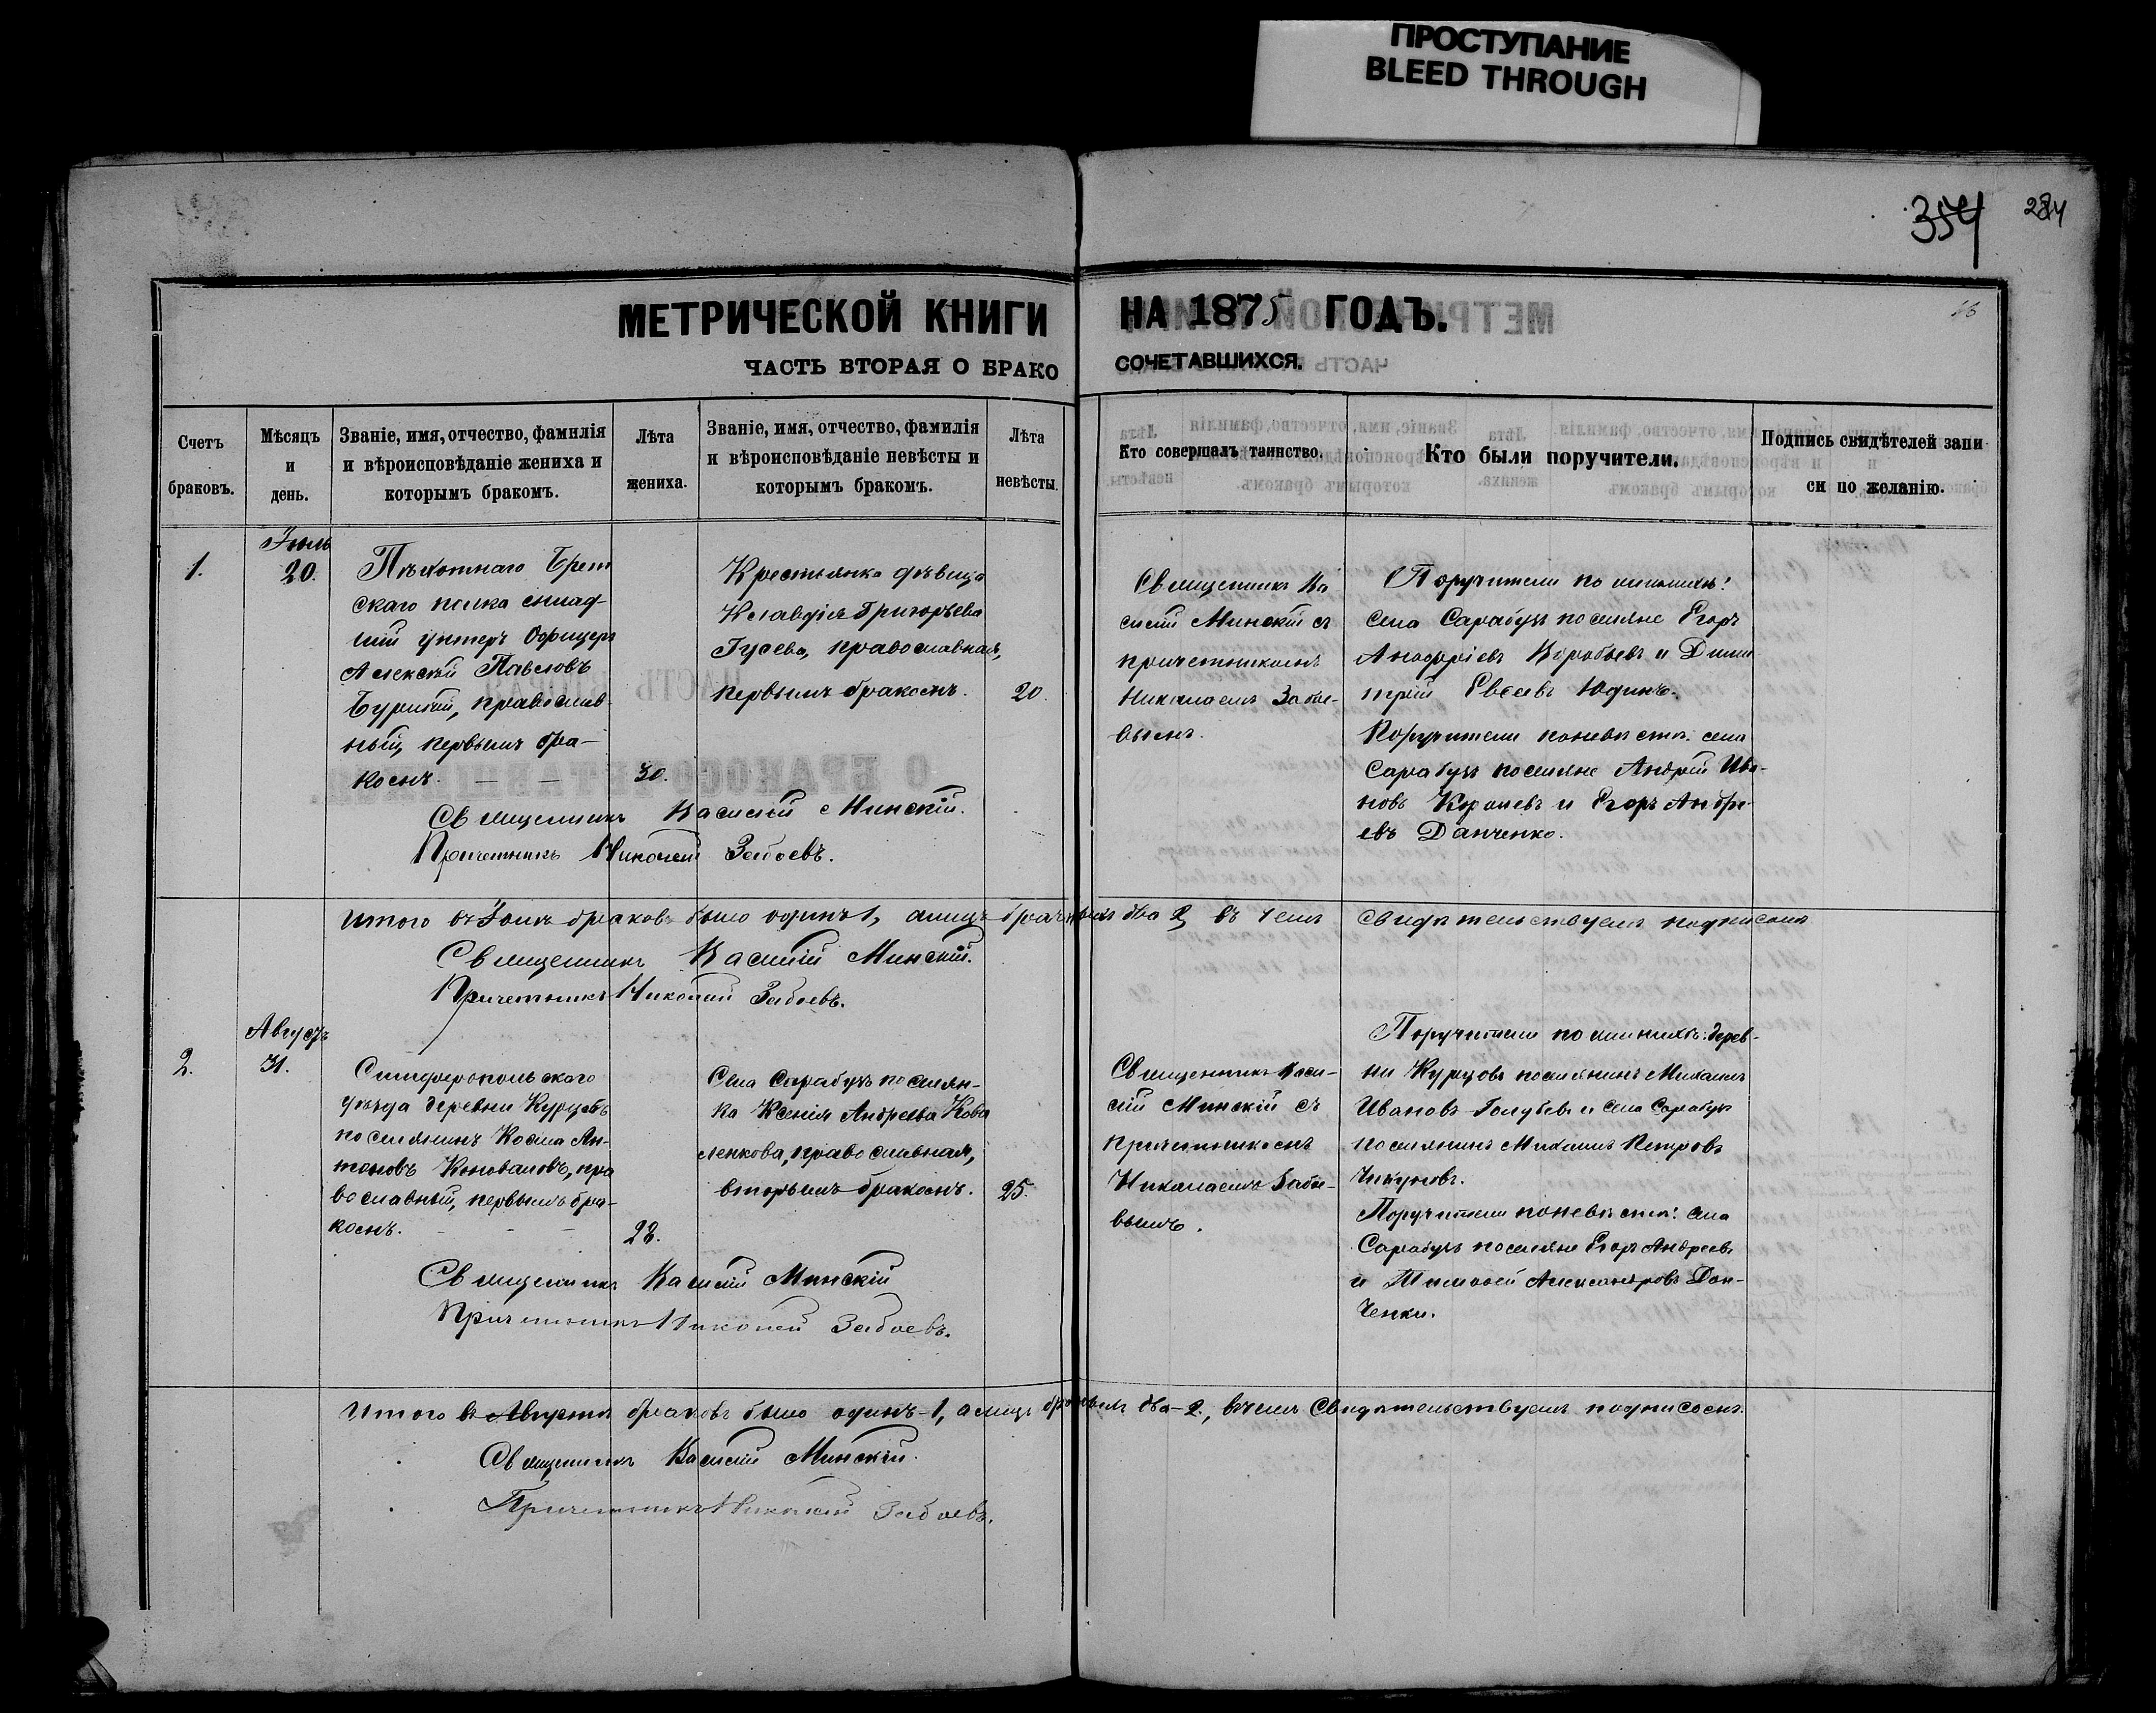 ПРОСТУПАНИЕ
BLEED THROUGH
354 284
МЕТРИЧЕСКОЙ КНИГИ НА 1875 ГОДЪ.
ЧАСТЬ ВТОРАЯ О БРАКО СОЧЕТАВШИХСЯ.
Счетъ
браковъ.
Мѣсяцъ
и
день.
Званіе, имя, отчество, фамилія
и вѣроисповѣданіе жениха и
которымъ бракомъ.
Лѣта
жениха.
Званіе, имя, отчество, фамилія
и вѣроисповѣданіе невѣсты и
которымъ бракомъ.
Лѣта
невѣсты.
Кто совершалъ таинство.
Кто были поручители.
Подпись свидѣтелей запи
си по желанію.
1.
Іюль
20.
Пѣхотнаго Брест
скаго полка млад-
шій унтеръ Офицеръ
Алексѣй Павловъ
православ-
ный, первымъ бра-
комъ.
30.
Крестьянка дѣвица
Клавдія Григорьева
Гусева, православная,
первымъ бракомъ.
20.
Священникъ Ва
силій Минскій съ
причетникомъ
Николаемъ Забое-
вымъ.
Поручители по женихѣ:
села Сарабузъ поселяне Егоръ
Воробьевъ и Дими
трій Евсеевъ Юдинъ.
Поручители по невѣстѣ: села
Сарабузъ поселяне Андрей Ива-
новъ и Егоръ Андре-
евъ Данченко.
Священникъ Василій Минскій.
Причетникъ Николай Забоевъ.
Итого въ Іюлѣ браковъ было одинъ 1, а лицъ брачныхъ два 2, въ чемъ свидѣтельствуемъ подписомъ
Священникъ Василій Минскій.
Причетникъ Николай Забоевъ.
2.
Августъ
31.
Симферопольскаго
уѣзда деревни Курцовъ
поселянинъ Косма Ан-
тоновъ Коноваловъ, пра
вославный, первымъ бра-
комъ.
28.
Села Сарабузъ поселян-
ка Ксенія Андреева Кова
ленкова, православная,
вторымъ бракомъ.
25.
Священникъ Васи-
лій Минскій съ
причетникомъ
Николаемъ Забое-
вымъ.
Поручители по женихѣ: дерев-
ни Курцовъ поселянинъ Михаилъ
Ивановъ Голубевъ и села Сарабузъ
поселянинъ Михаилъ Петровъ
Поручители по невѣстѣ: села
Сарабузъ поселяне Егоръ Андреевъ
и Тимофей Александровъ Дан-
ченки.
Священникъ Василій Минскій
Причетникъ Николай Забоевъ.
Итого въ Августѣ браковъ было одинъ-1, а лицъ брачныхъ два-2, въ чемъ свидѣтельствуемъ подписомъ.
Священникъ Василій Минскій.
Причетникъ Николай Забоевъ.